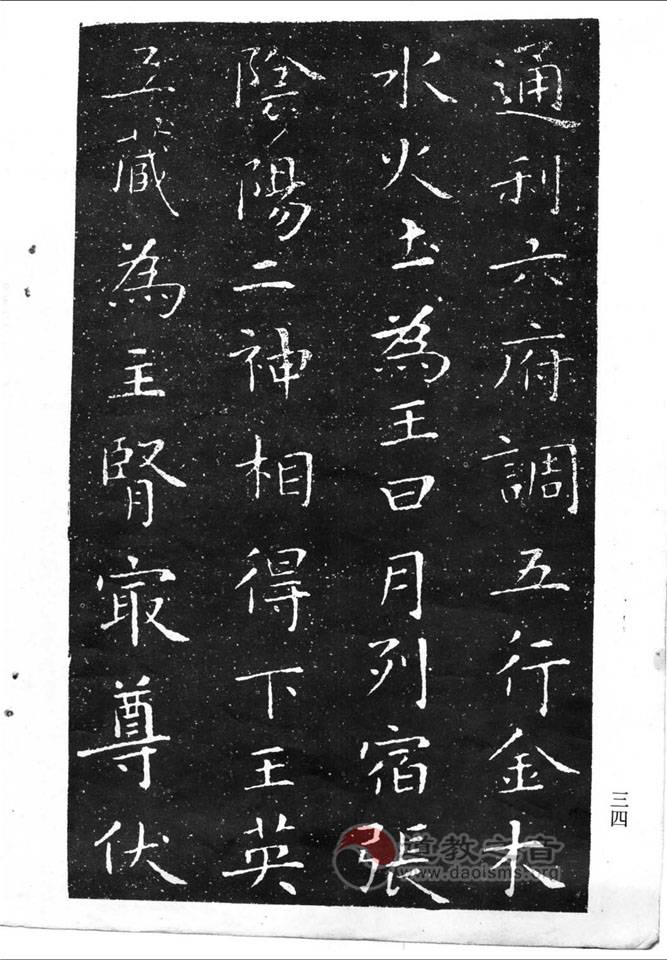 通利六府調五行金木
水火土為王曰月列宿張
陰陽二神相得下王英
五藏為主腎冣尊伏
三四
道教之音
www.daoisms.org